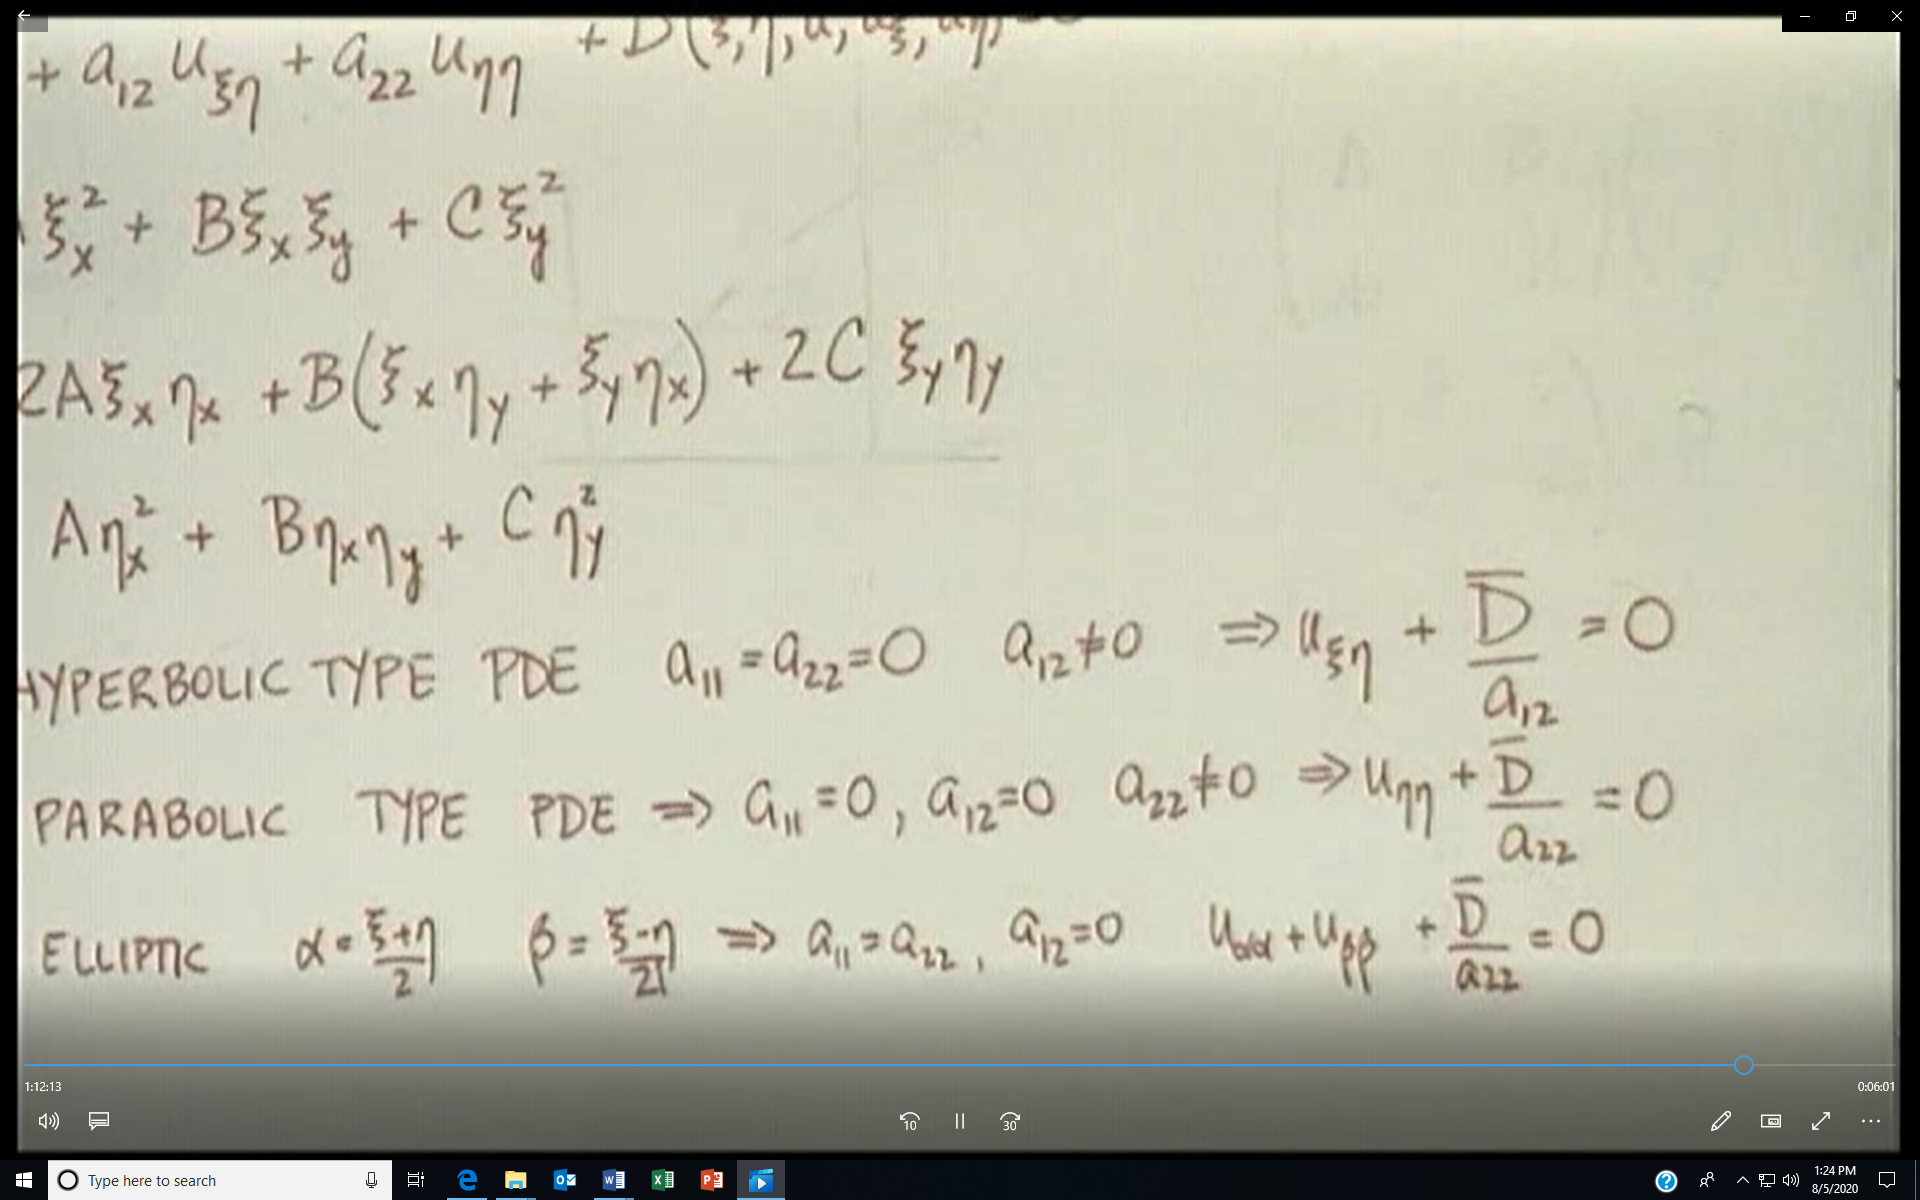 + a₁₂ u_ξη + a₂₂ u_ηη + D(ξ, η, u, u_ξ, u_η) = 0
ξₓ² + Bξₓξ_y + Cξ_y²
2Aξₓηₓ + B(ξₓη_y + ξ_yηₓ) + 2C ξ_yη_y
Aηₓ² + Bηₓη_y + Cη_y²
HYPERBOLIC TYPE PDE a₁₁ = a₂₂ = 0 a₁₂ ≠ 0 ⇒ u_ξη + D̿/a₁₂ = 0
PARABOLIC TYPE PDE ⇒ a₁₁ = 0, a₁₂ = 0 a₂₂ ≠ 0 ⇒ u_ηη + D̅/a₂₂ = 0
ELLIPTIC α = (ξ+η)/2 β = (ξ-η)/2i ⇒ a₁₁ = a₂₂, a₁₂ = 0 u_αα + u_ββ + D̅/a₂₂ = 0
1:12:13
0:06:01
10
30
Type here to search
1:24 PM
8/5/2020